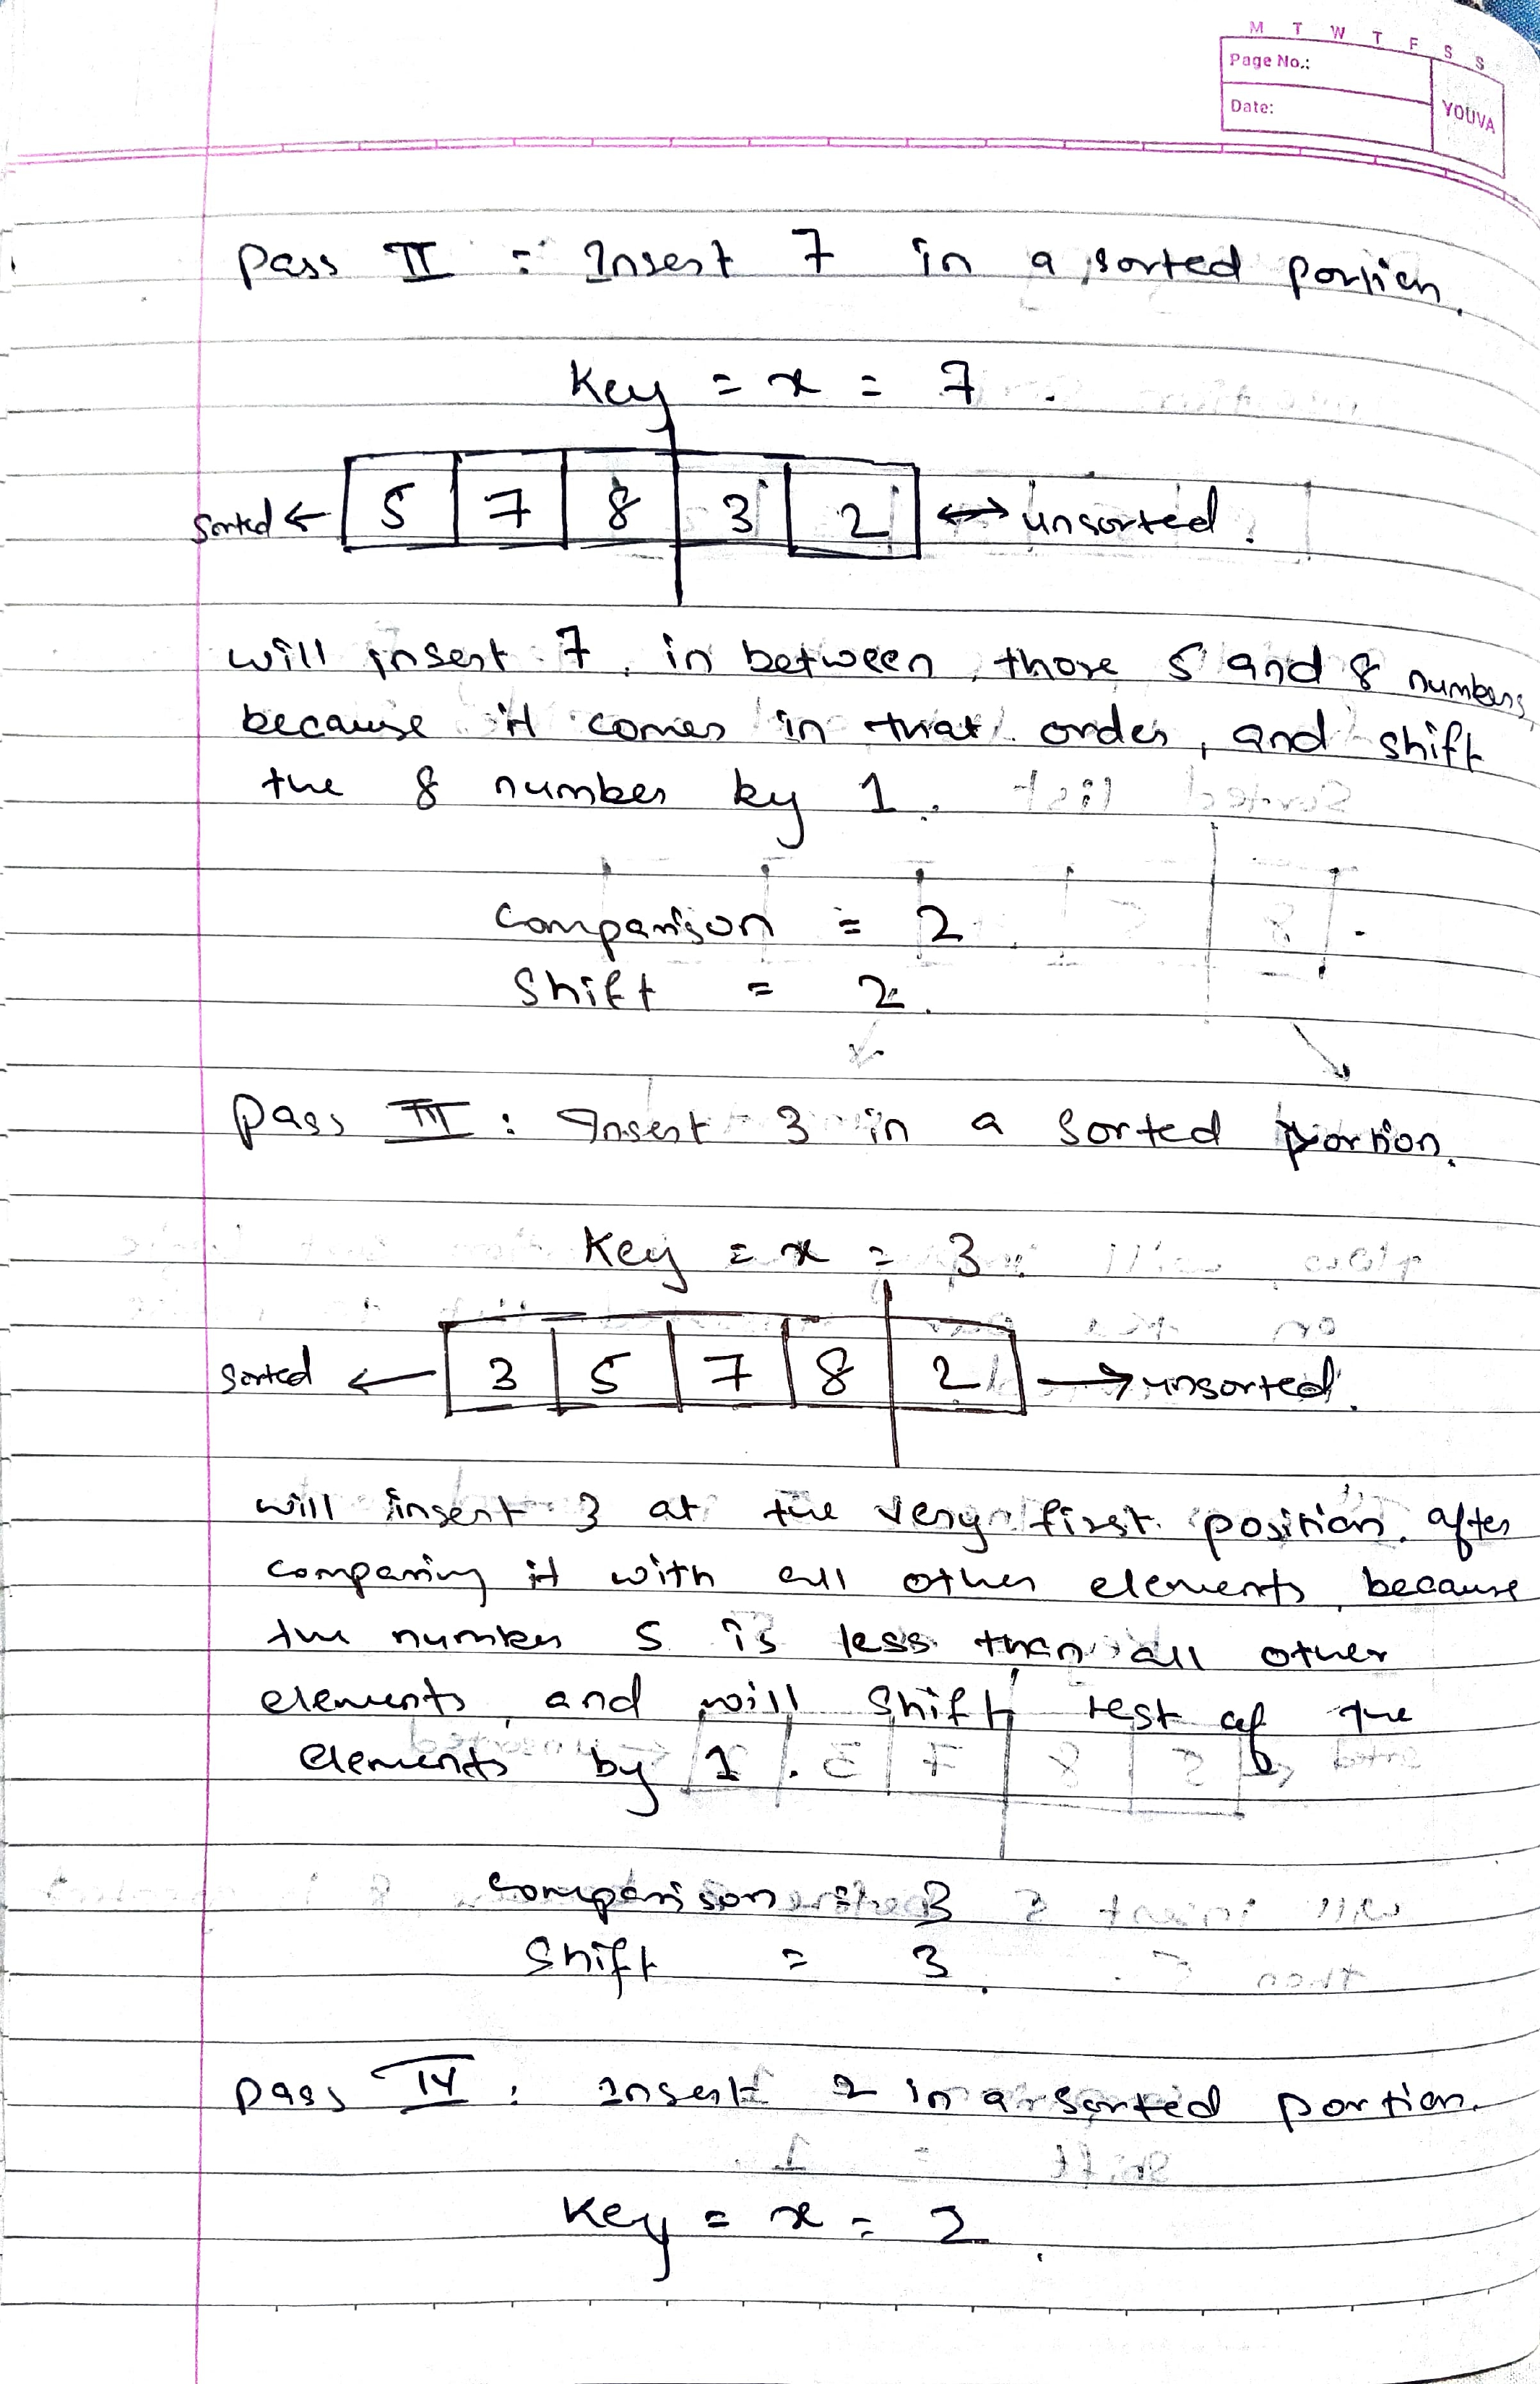 M T W T F S S
Page No.:
Date:
YOUVA
Pass II : Insert 7 in a sorted portion.
Key = x = 7
Sorted ← 5 7 8 3 2 ↔ unsorted.
will insert 7 in between those 5 and 8 numbers
because it comes in that order, and shift
the 8 number by 1.
Comparison = 2
Shift = 2.
Pass III : Insert 3 in a sorted portion.
Key = x = 3.
Sorted ← 3 5 7 8 2 → unsorted.
will insert 3 at the very first position after
comparing it with all other elements because
the number 5 is less than all other
elements, and will shift rest of the
elements by 1.
comparison = 3
Shift = 3.
Pass IV : Insert 2 in a sorted portion.
Key = x = 2.